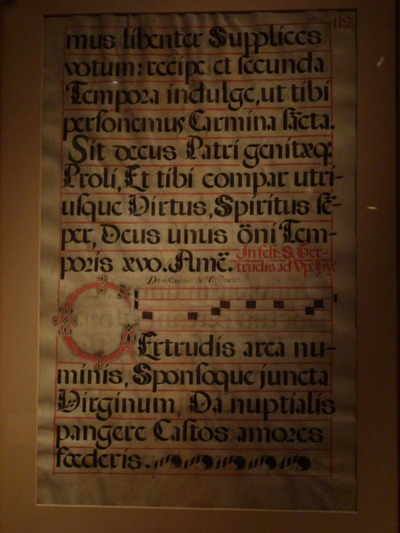 112
mus libenter Supplices
votum: recipe et secunda
Tempora indulge, ut tibi
personemus Carmina sācta.
Sit decus Patri genitæq;
Proli, Et tibi compar utri-
usque Virtus, Spiritus sē-
per, Deus unus ōni Tem-
poris ævo. Amē. In fest. S. Ger-
trudis ad Vesp.
GErtrudis arca nu-
minis, Sponsoque juncta
Virginum, Da nuptialis
pangere Castos amores
fœderis.